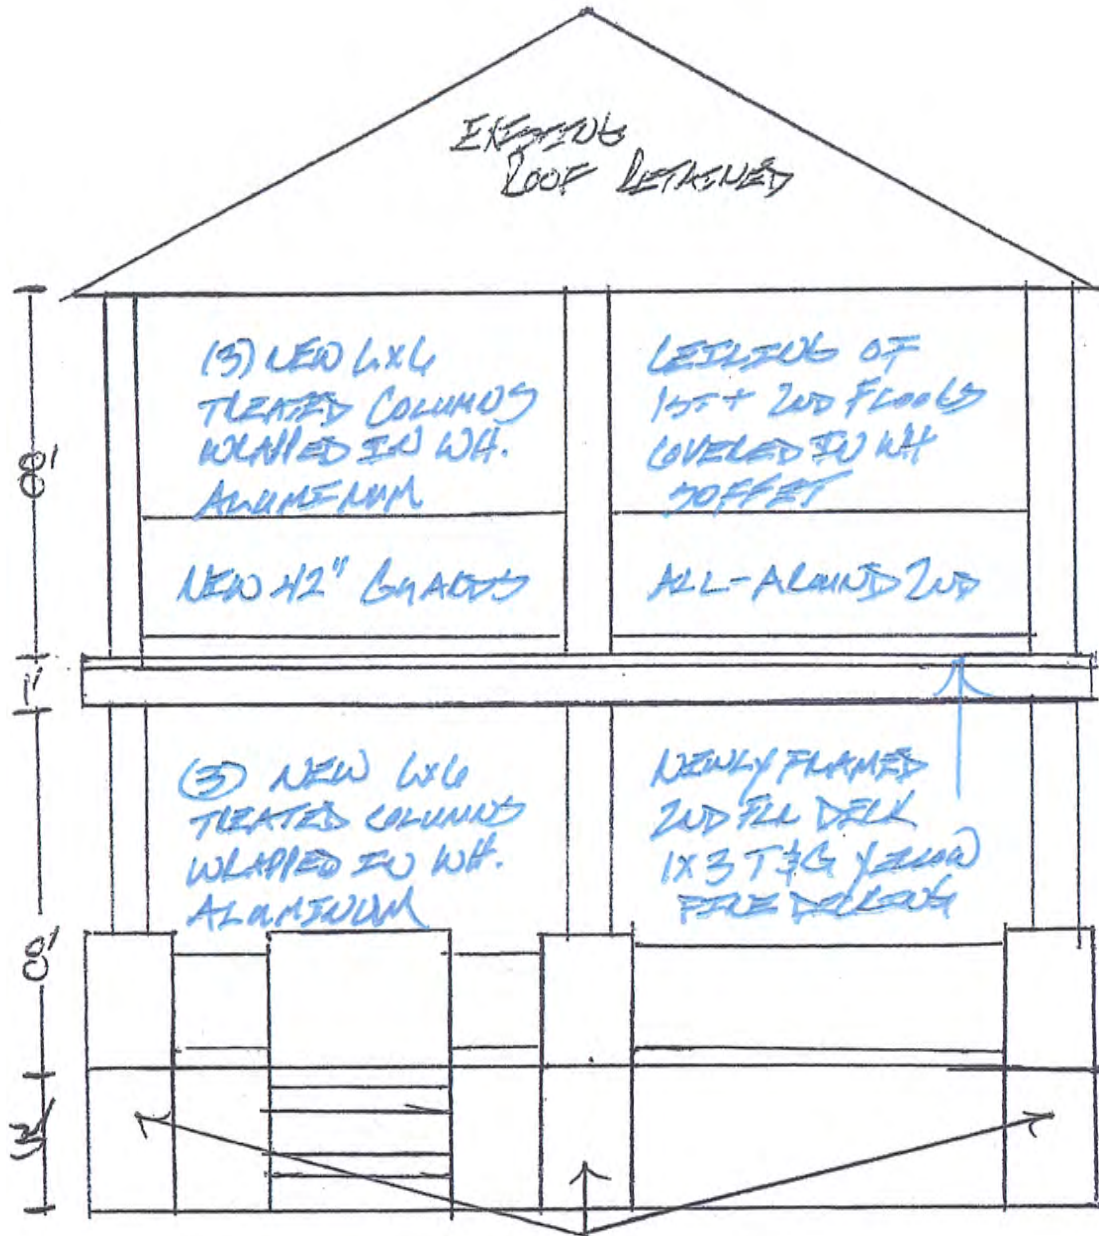 EXISTING
ROOF RETAINED
(3) NEW 6x6
TREATED COLUMNS
WRAPPED IN WH.
ALUMINUM
CEILING OF
1ST + 2ND FLOORS
COVERED IN WH
SOFFET
8'
NEW 42" GUARDS
ALL-AROUND 2ND
1'
(3) NEW 6x6
TREATED COLUMNS
WRAPPED IN WH.
ALUMINUM
NEWLY FRAMED
2ND FLR DECK
1X3 T&G YELLOW
PINE DECKING
8'